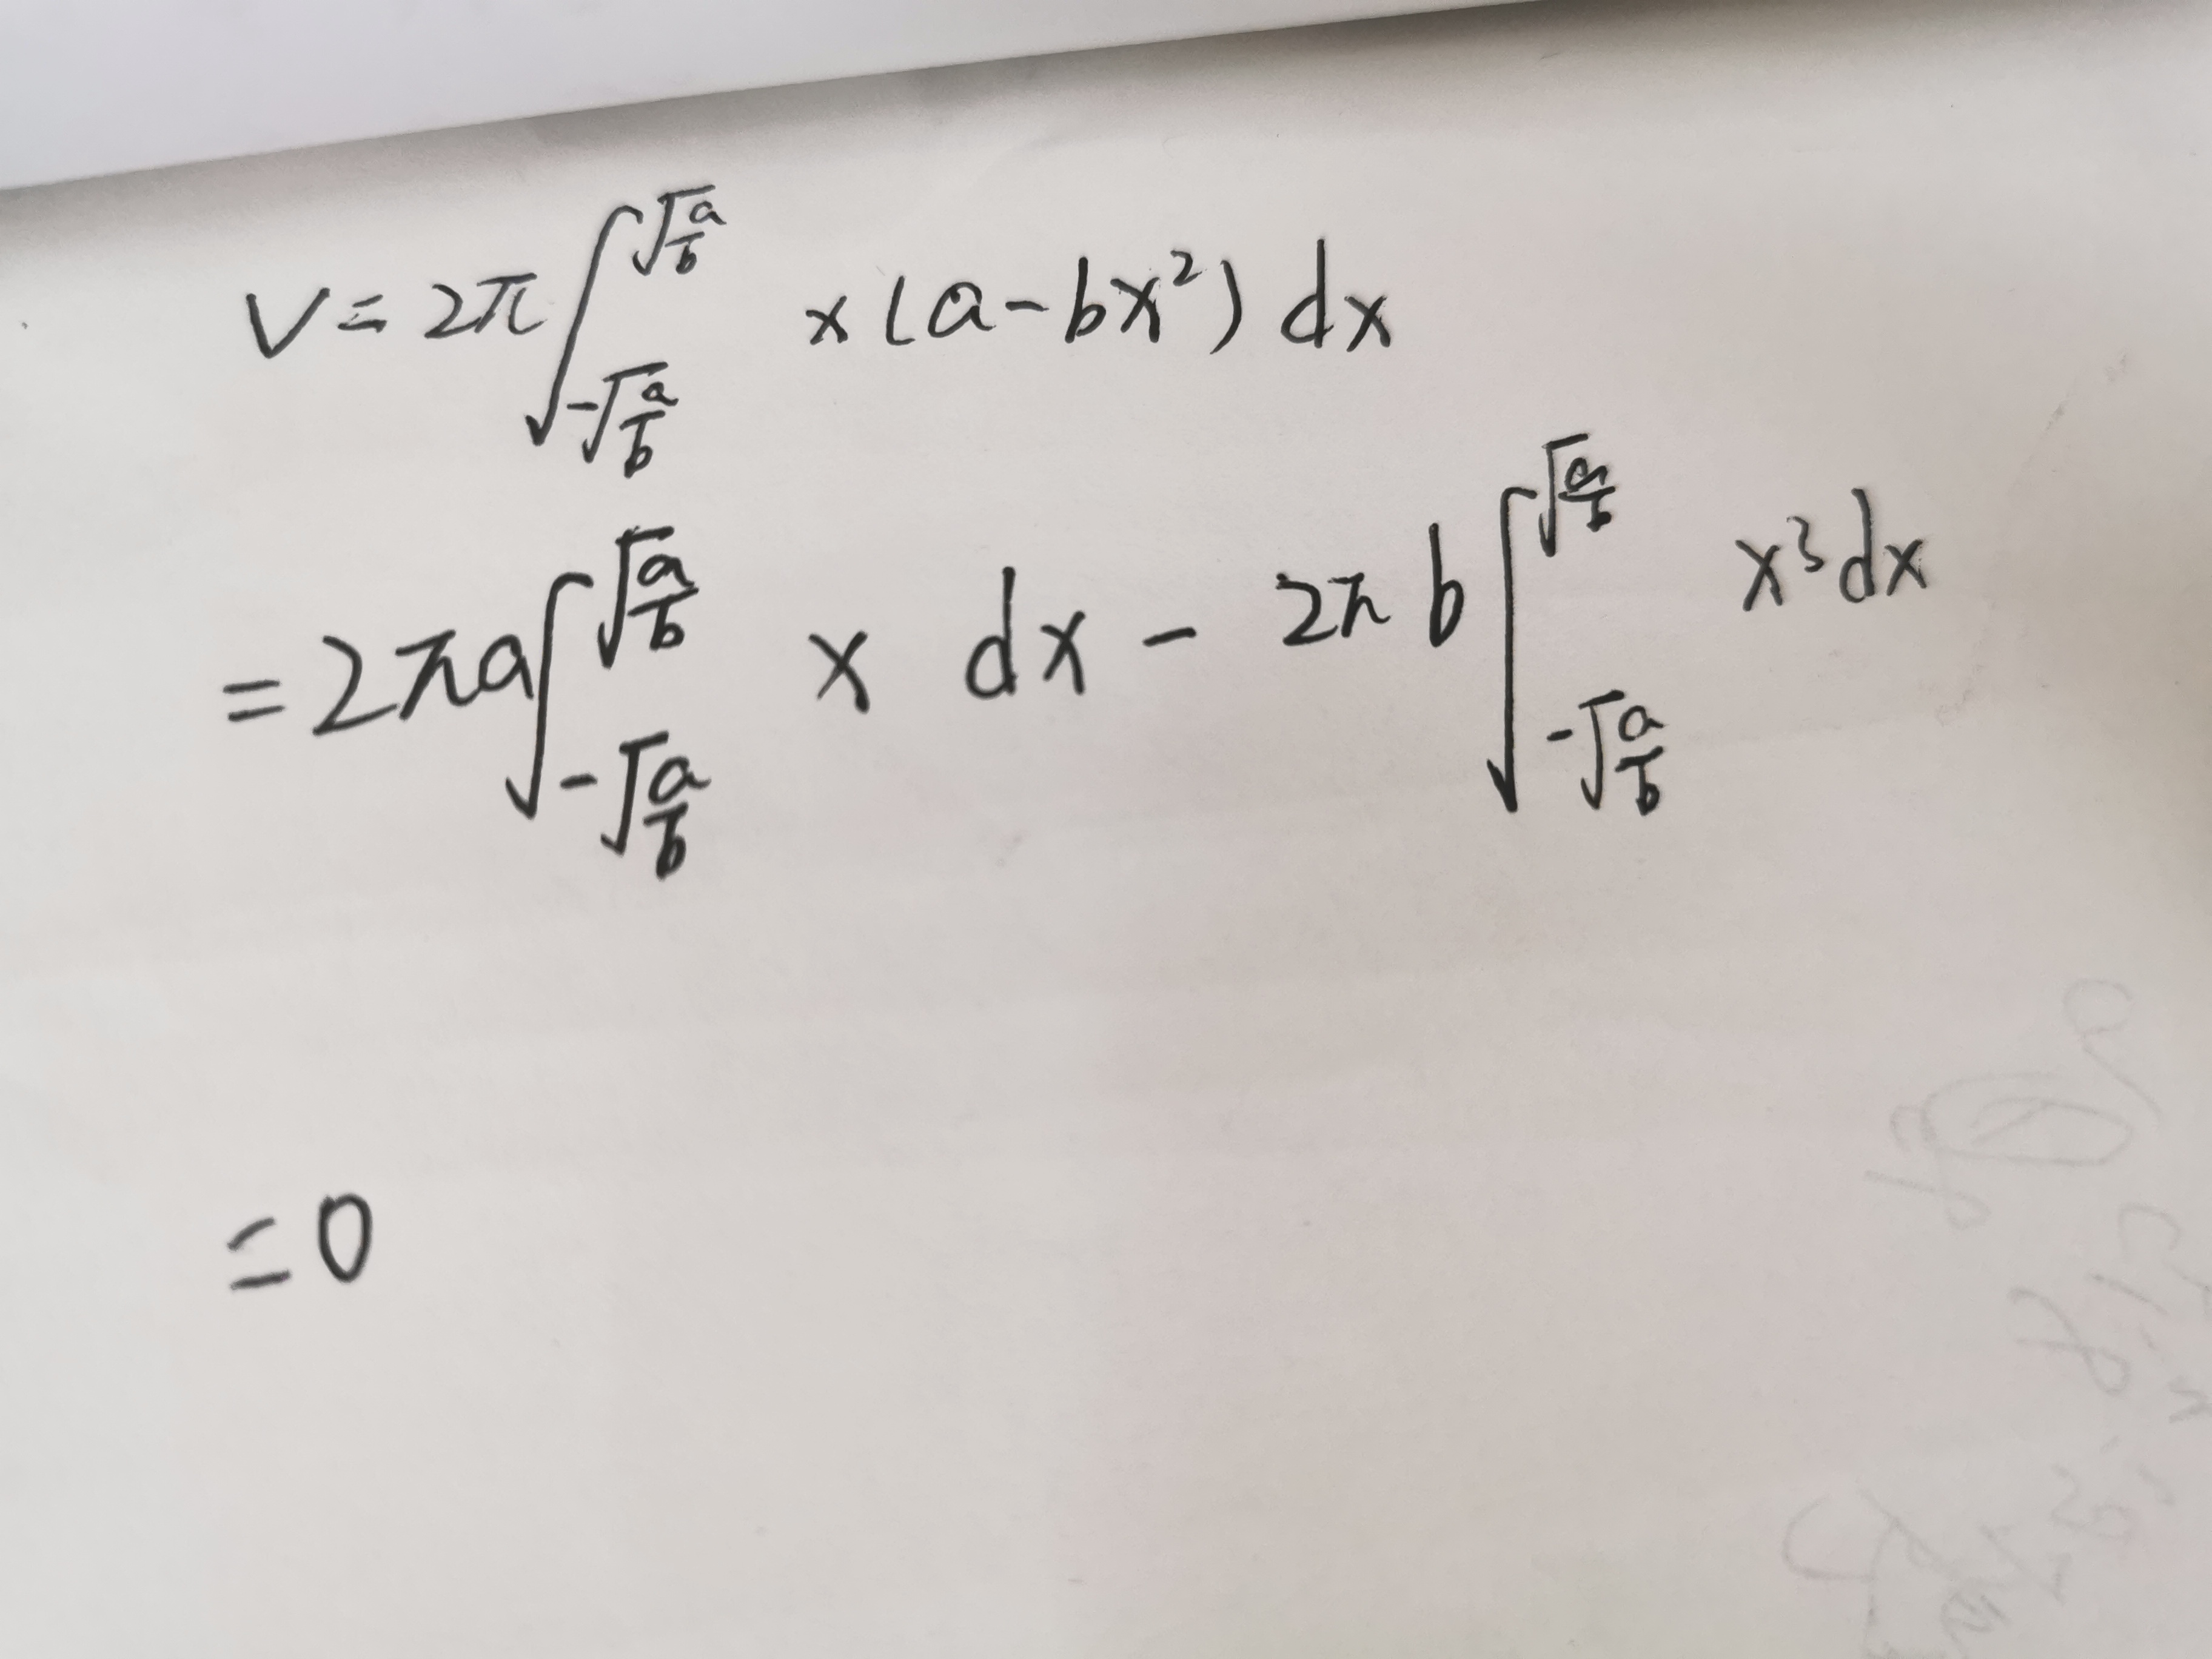 V = 2π∫_{-√(a/b)}^{√(a/b)} x(a-bx²) dx
= 2πa∫_{-√(a/b)}^{√(a/b)} x dx - 2πb∫_{-√(a/b)}^{√(a/b)} x³dx
= 0